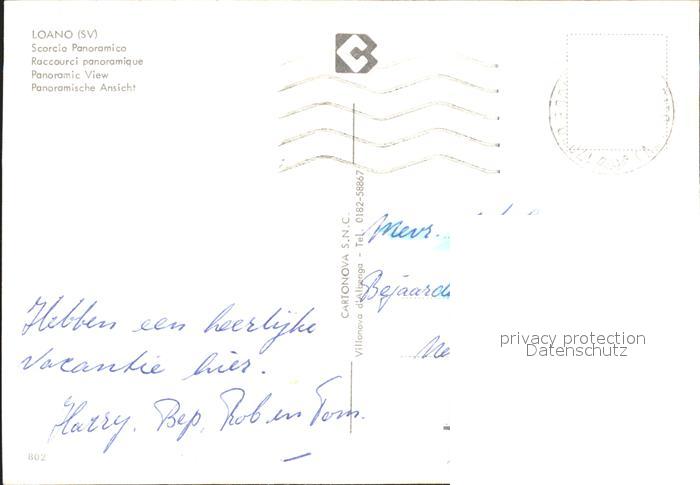 LOANO (SV)
Scorcio Panoramico
Raccourci panoramique
Panoramic View
Panoramische Ansicht
CARTONOVA S.N.C.
Villanova d'Albenga - Tel. 0182-58867
Mevr.
Bejaard
Ne
Hebben een heerlijke
vacantie hier.
Harry. Bep. Rob en Tom.
802
privacy protection
Datenschutz